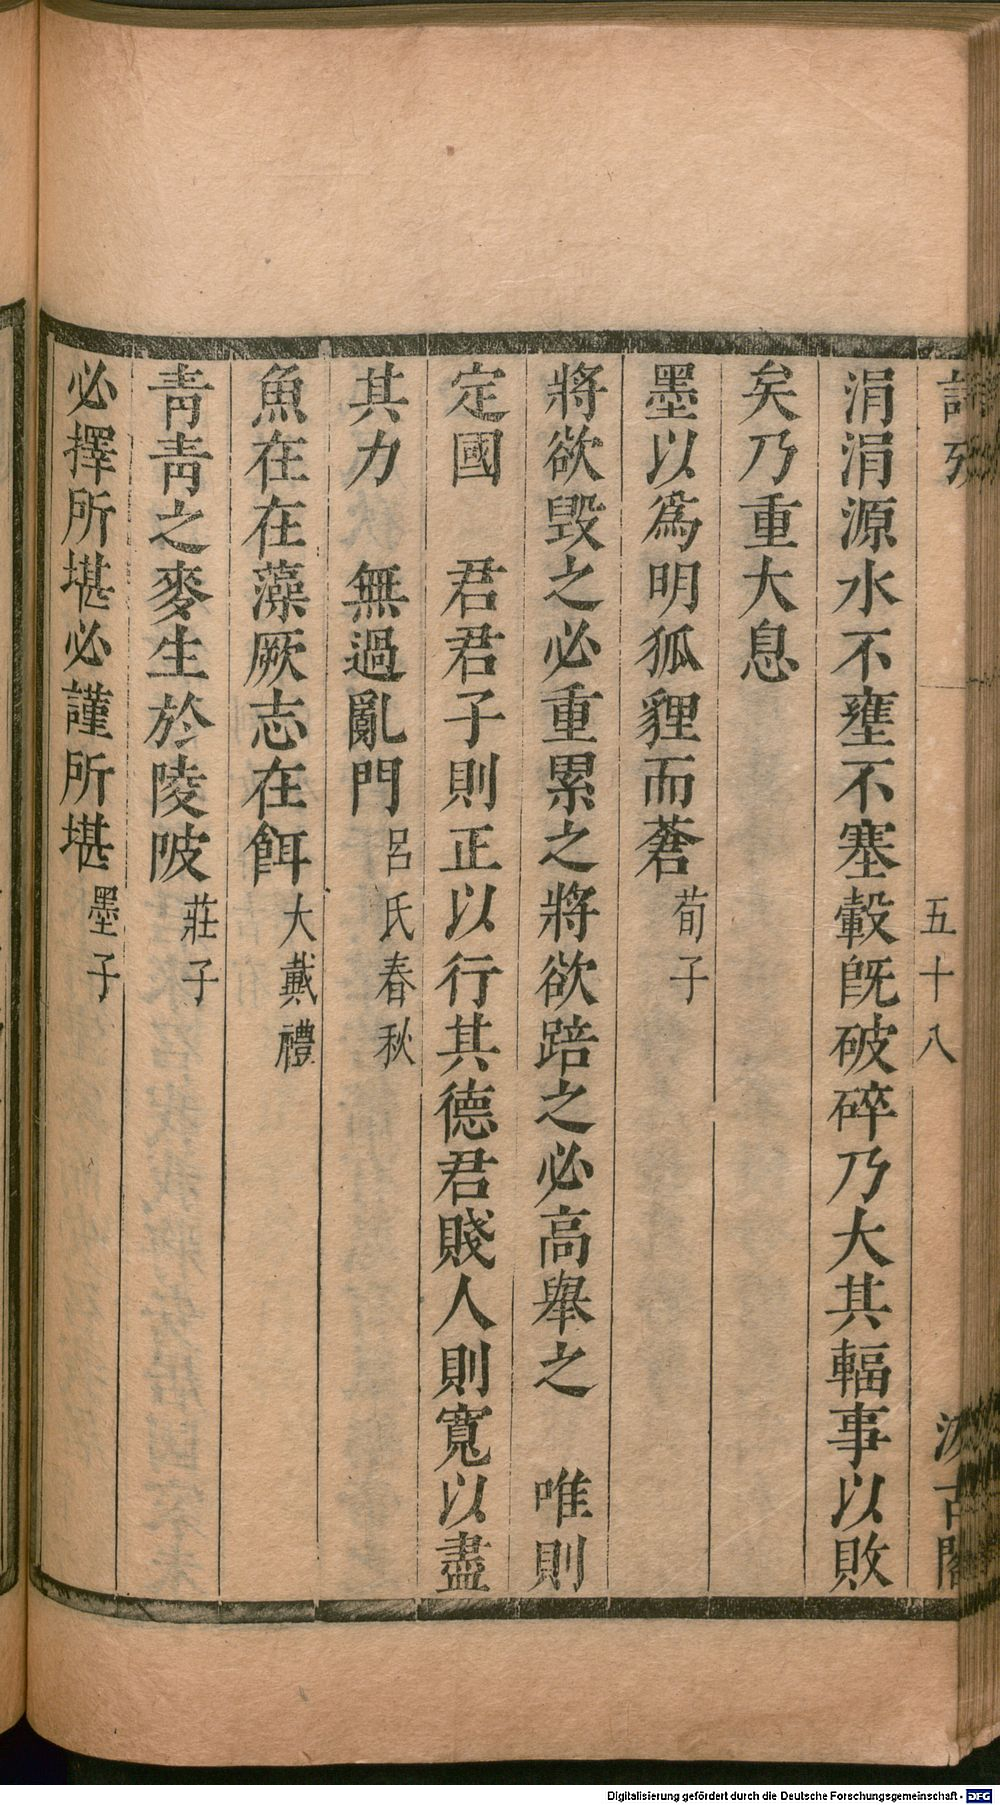 五十八
古閣
涓涓源水不壅不塞轂既破碎乃大其輻事以敗
矣乃重大息
墨以為明狐狸而蒼荀子
將欲毀之必重累之將欲踣之必高舉之　唯則
定國　君君子則正以行其德君賤人則寬以盡
其力　無過亂門呂氏春秋
魚在在藻厥志在餌大戴禮
青青之麥生於陵陂莊子
必擇所堪必謹所堪墨子
Digitalisierung gefördert durch die Deutsche Forschungsgemeinschaft - DFG